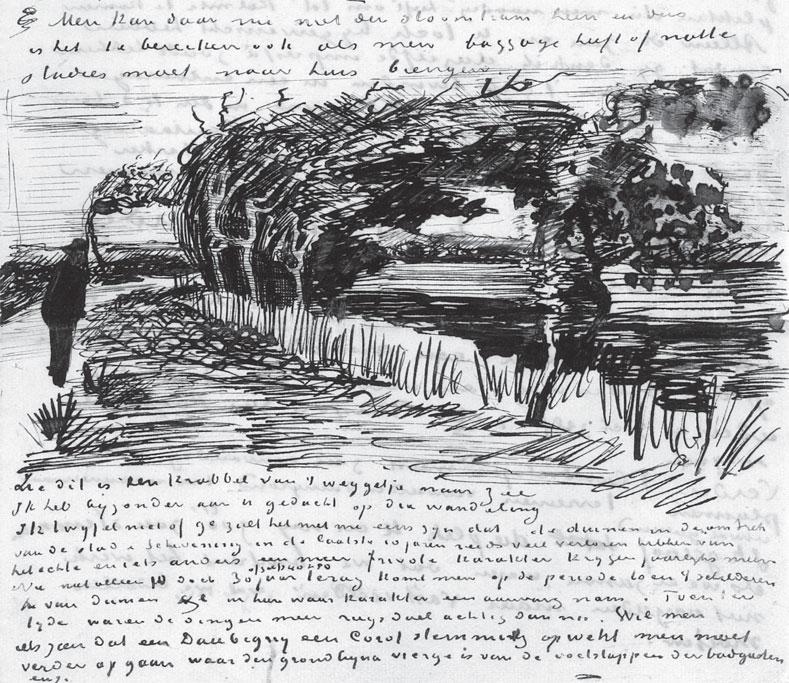 Men kan daar nu met den stoomtram heen en dus
is het te bereiken ook als men baggage heeft of natte
studies moet naar huis brengen
Zie dit is een krabbel van 't weggetje naar zee
Ik heb bijzonder aan u gedacht op die wandeling
Ik twyfel niet of ge zult het met me eens zyn dat de duinen in den omtrek
van de stad & Schevening in de laatste 10 jaren reeds veel verloren hebben van
het echte en iets anders een meer frivole karakter krygen jaarlyks meer
Nu niet alleen 10 doch 30 jaar terug komt men op de periode toen 't schilderen
van duinen in hun waar karakter een aanvang nam. Toen ter
tyde waren de dingen meer ruysdael achtig dan nu. Wil men
iets zien dat een Daubigny een Corot stemming opwekt men moet
verder op gaan waar den grond byna vierge is van de voetstappen der badgasten
enz.